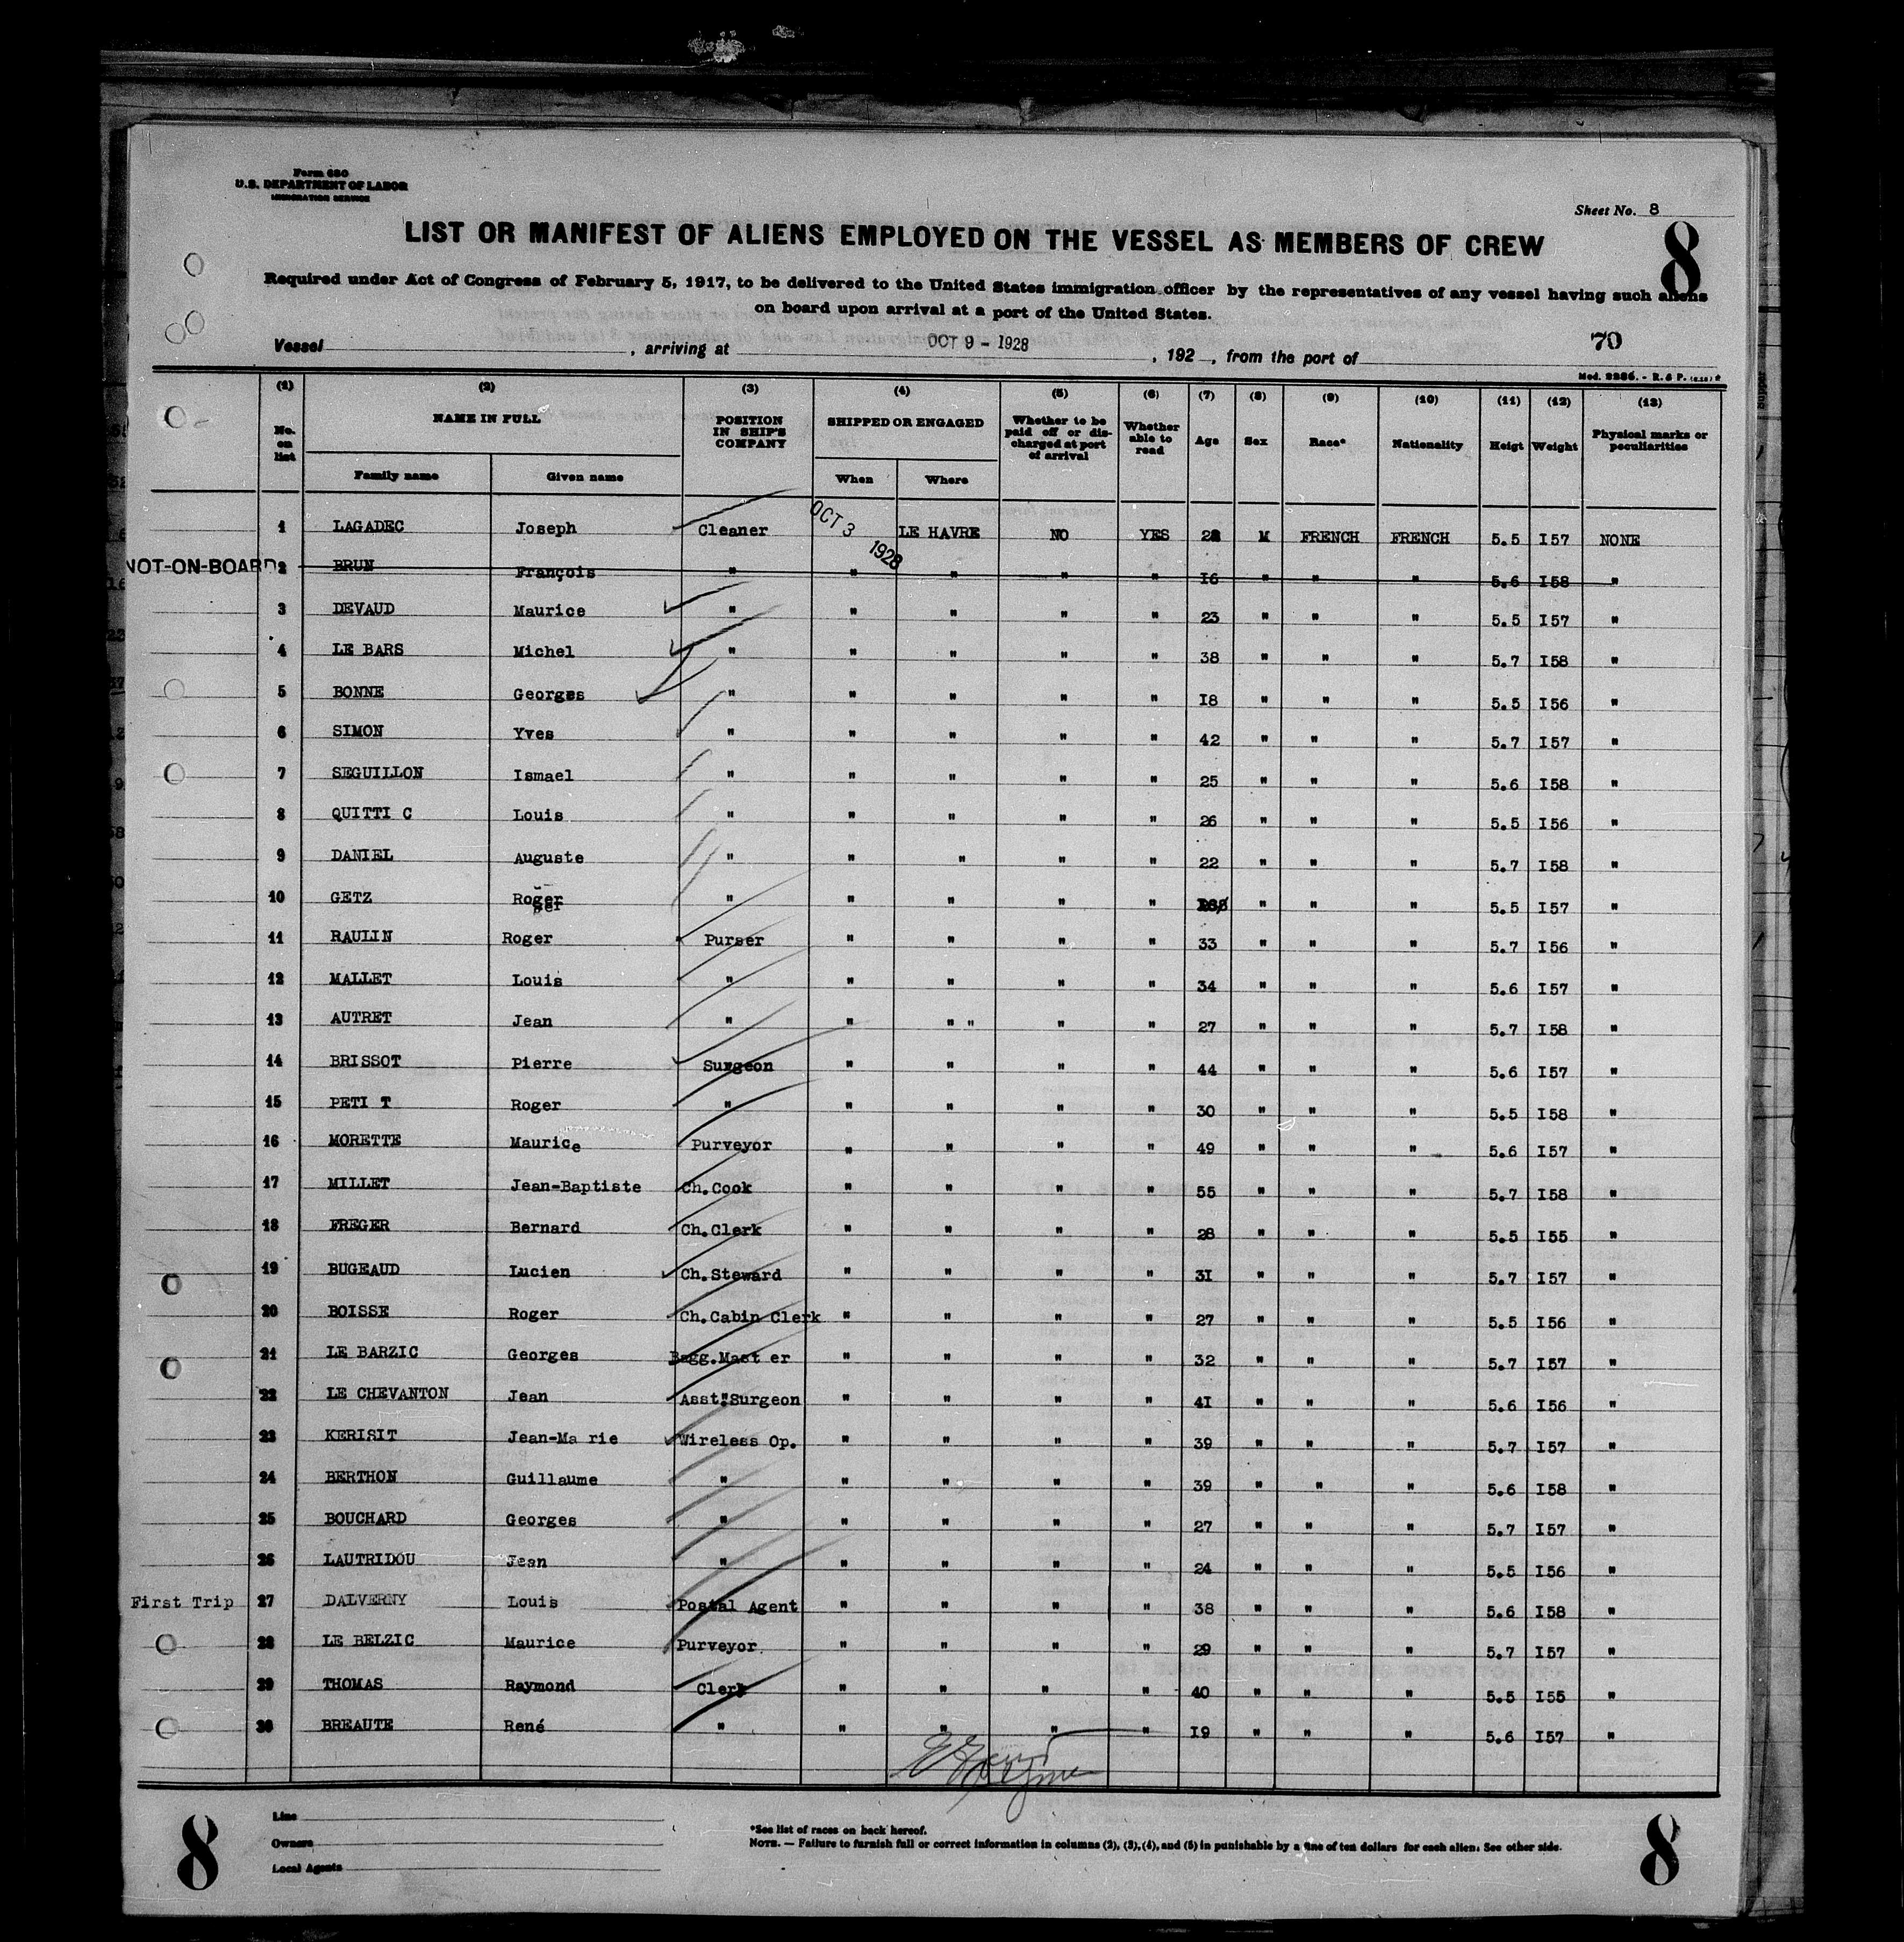 Form 680
U.S. DEPARTMENT OF LABOR
IMMIGRATION SERVICE
Sheet No. 8
8
LIST OR MANIFEST OF ALIENS EMPLOYED ON THE VESSEL AS MEMBERS OF CREW
Required under Act of Congress of February 5, 1917, to be delivered to the United States immigration officer by the representatives of any vessel having such aliens
on board upon arrival at a port of the United States.
Vessel , arriving at OCT 9 - 1928 , 192 , from the port of 70
Mod. 2286. - R. & P.
(1) (2) (3) (4) (5) (6) (7) (8) (9) (10) (11) (12) (13)
No. on list NAME IN FULL Family name Given name POSITION IN SHIP'S COMPANY SHIPPED OR ENGAGED When Where Whether to be paid off or discharged at port of arrival Whether able to read Age Sex Race* Nationality Heigt Weight Physical marks or peculiarities
1 LAGADEC Joseph Cleaner OCT 3 1928 LE HAVRE NO YES 28 M FRENCH FRENCH 5.5 I57 NONE
NOT-ON-BOARD 2 BRUN François " " " " " I6 " " " 5.6 I58 "
3 DEVAUD Maurice " " " " " 23 " " " 5.5 I57 "
4 LE BARS Michel " " " " " 38 " " " 5.7 I58 "
5 BONNE Georges " " " " " I8 " " " 5.5 I56 "
6 SIMON Yves " " " " " 42 " " " 5.7 I57 "
7 SEGUILLON Ismael " " " " " 25 " " " 5.6 I58 "
8 QUITTI C Louis " " " " " 26 " " " 5.5 I56 "
9 DANIEL Auguste " " " " " 22 " " " 5.7 I58 "
10 GETZ Roger " " " " " " " " 5.5 I57 "
11 RAULIN Roger Purser " " " " 33 " " " 5.7 I56 "
12 MALLET Louis " " " " " 34 " " " 5.6 I57 "
13 AUTRET Jean " " " " " " 27 " " " 5.7 I58 "
14 BRISSOT Pierre Surgeon " " " " 44 " " " 5.6 I57 "
15 PETI T Roger " " " " " 30 " " " 5.5 I58 "
16 MORETTE Maurice Purveyor " " " " 49 " " " 5.6 I57 "
17 MILLET Jean-Baptiste Ch.Cook " " " " 55 " " " 5.7 I58 "
18 FREGER Bernard Ch.Clerk " " " " 28 " " " 5.5 I55 "
19 BUGEAUD Lucien Ch.Steward " " " " 3I " " " 5.7 I57 "
20 BOISSE Roger Ch.Cabin Clerk " " " " 27 " " " 5.5 I56 "
21 LE BARZIC Georges Bagg.Mast er " " " " 32 " " " 5.7 I57 "
22 LE CHEVANTON Jean Asst.Surgeon " " " " 4I " " " 5.6 I56 "
23 KERISIT Jean-Ma rie Wireless Op. " " " " 39 " " " 5.7 I57 "
24 BERTHON Guillaume " " " " " 39 " " " 5.6 I58 "
25 BOUCHARD Georges " " " " " 27 " " " 5.7 I57 "
26 LAUTRIDOU Jean " " " " " 24 " " " 5.5 I56 "
First Trip 27 DALVERNY Louis Postal Agent " " " " 38 " " " 5.6 I58 "
28 LE BELZIC Maurice Purveyor " " " " 29 " " " 5.7 I57 "
29 THOMAS Raymond Clerk " " " " 40 " " " 5.5 I55 "
30 BREAUTE René " " " " " I9 " " " 5.6 I57 "
Line
Owners
Local Agents
*See list of races on back hereof.
NOTE. — Failure to furnish full or correct information in columns (2), (3), (4), and (5) in punishable by a fine of ten dollars for each alien. See other side.
8
8